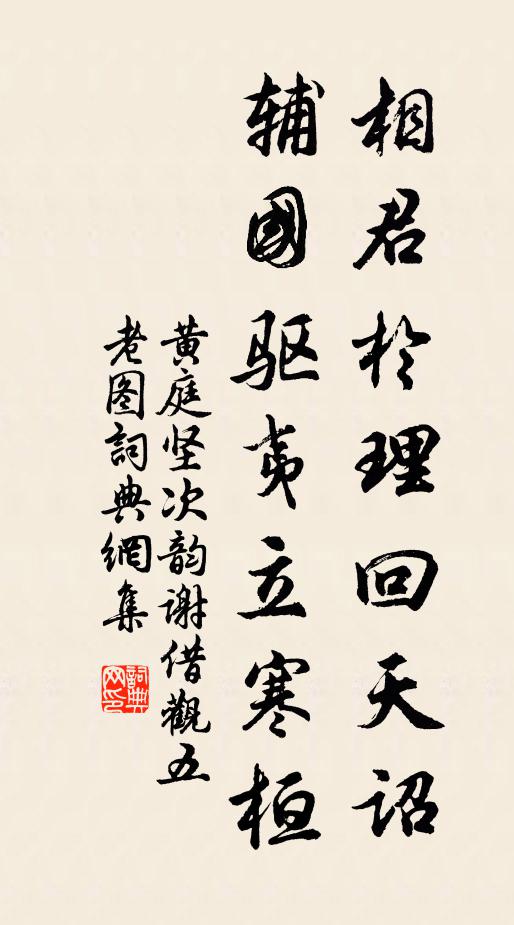 相君於理回天詔
輔國驱夷立寒桓
黄庭坚次韵謝借觀五
老图詞典網集
詞典
网印